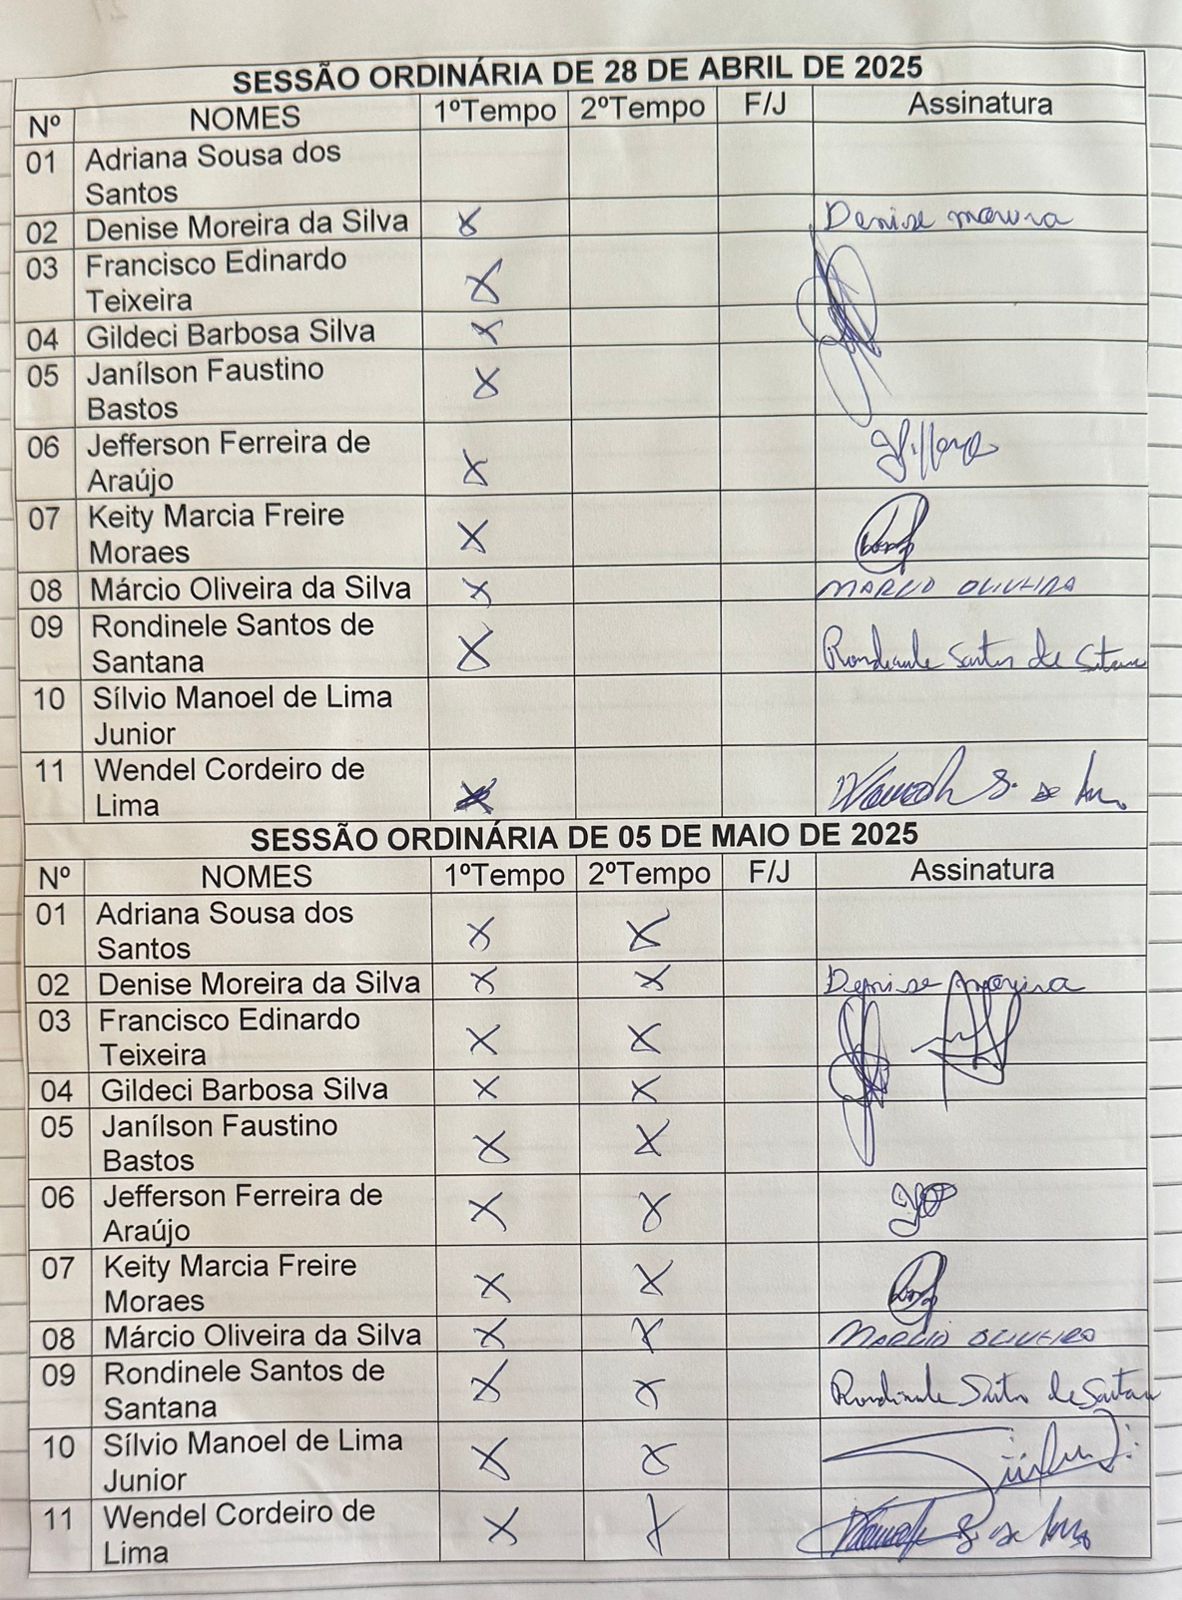 SESSÃO ORDINÁRIA DE 28 DE ABRIL DE 2025
Nº NOMES 1ºTempo 2ºTempo F/J Assinatura
01 Adriana Sousa dos
Santos
02 Denise Moreira da Silva X Denise moreira
03 Francisco Edinardo
Teixeira X
04 Gildeci Barbosa Silva X
05 Janílson Faustino
Bastos X
06 Jefferson Ferreira de
Araújo X
07 Keity Marcia Freire
Moraes X
08 Márcio Oliveira da Silva X MARCIO OLIVEIRA
09 Rondinele Santos de
Santana X Rondinele Santos de Santana
10 Sílvio Manoel de Lima
Junior
11 Wendel Cordeiro de
Lima X
SESSÃO ORDINÁRIA DE 05 DE MAIO DE 2025
Nº NOMES 1ºTempo 2ºTempo F/J Assinatura
01 Adriana Sousa dos
Santos X X
02 Denise Moreira da Silva X X Denise Moreira
03 Francisco Edinardo
Teixeira X X
04 Gildeci Barbosa Silva X X
05 Janílson Faustino
Bastos X X
06 Jefferson Ferreira de
Araújo X X
07 Keity Marcia Freire
Moraes X X
08 Márcio Oliveira da Silva X X MARCIO OLIVEIRA
09 Rondinele Santos de
Santana X X Rondinele Santos de Santana
10 Sílvio Manoel de Lima
Junior X X
11 Wendel Cordeiro de
Lima X X